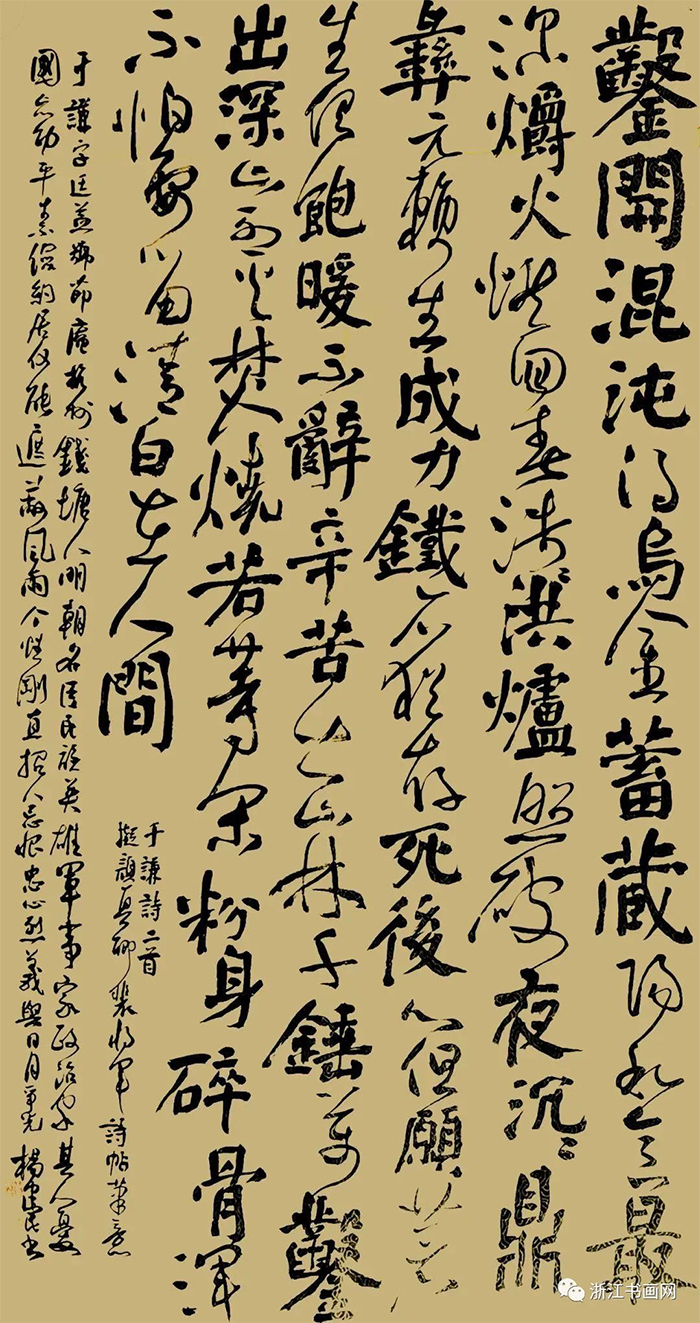 鑿開混沌得烏金蓄藏陽和意最
深爝火燃回春浩〻洪爐照破夜沉〻鼎
彝元賴生成力鐵石猶存死後心但願蒼
生俱飽暖不辭辛苦出山林千錘萬鑿
出深山烈火焚燒若等閑粉身碎骨渾
不怕要留清白在人間
于謙詩二首
擬顏真卿裴將軍詩帖筆意
于謙字廷益號節庵杭州錢塘人明朝名臣民族英雄軍事家政治家其人憂
國忘平素儉約居僅能遮蔽風雨个性剛直招人忌恨忠心烈義與日月爭光楊書
浙江书画网